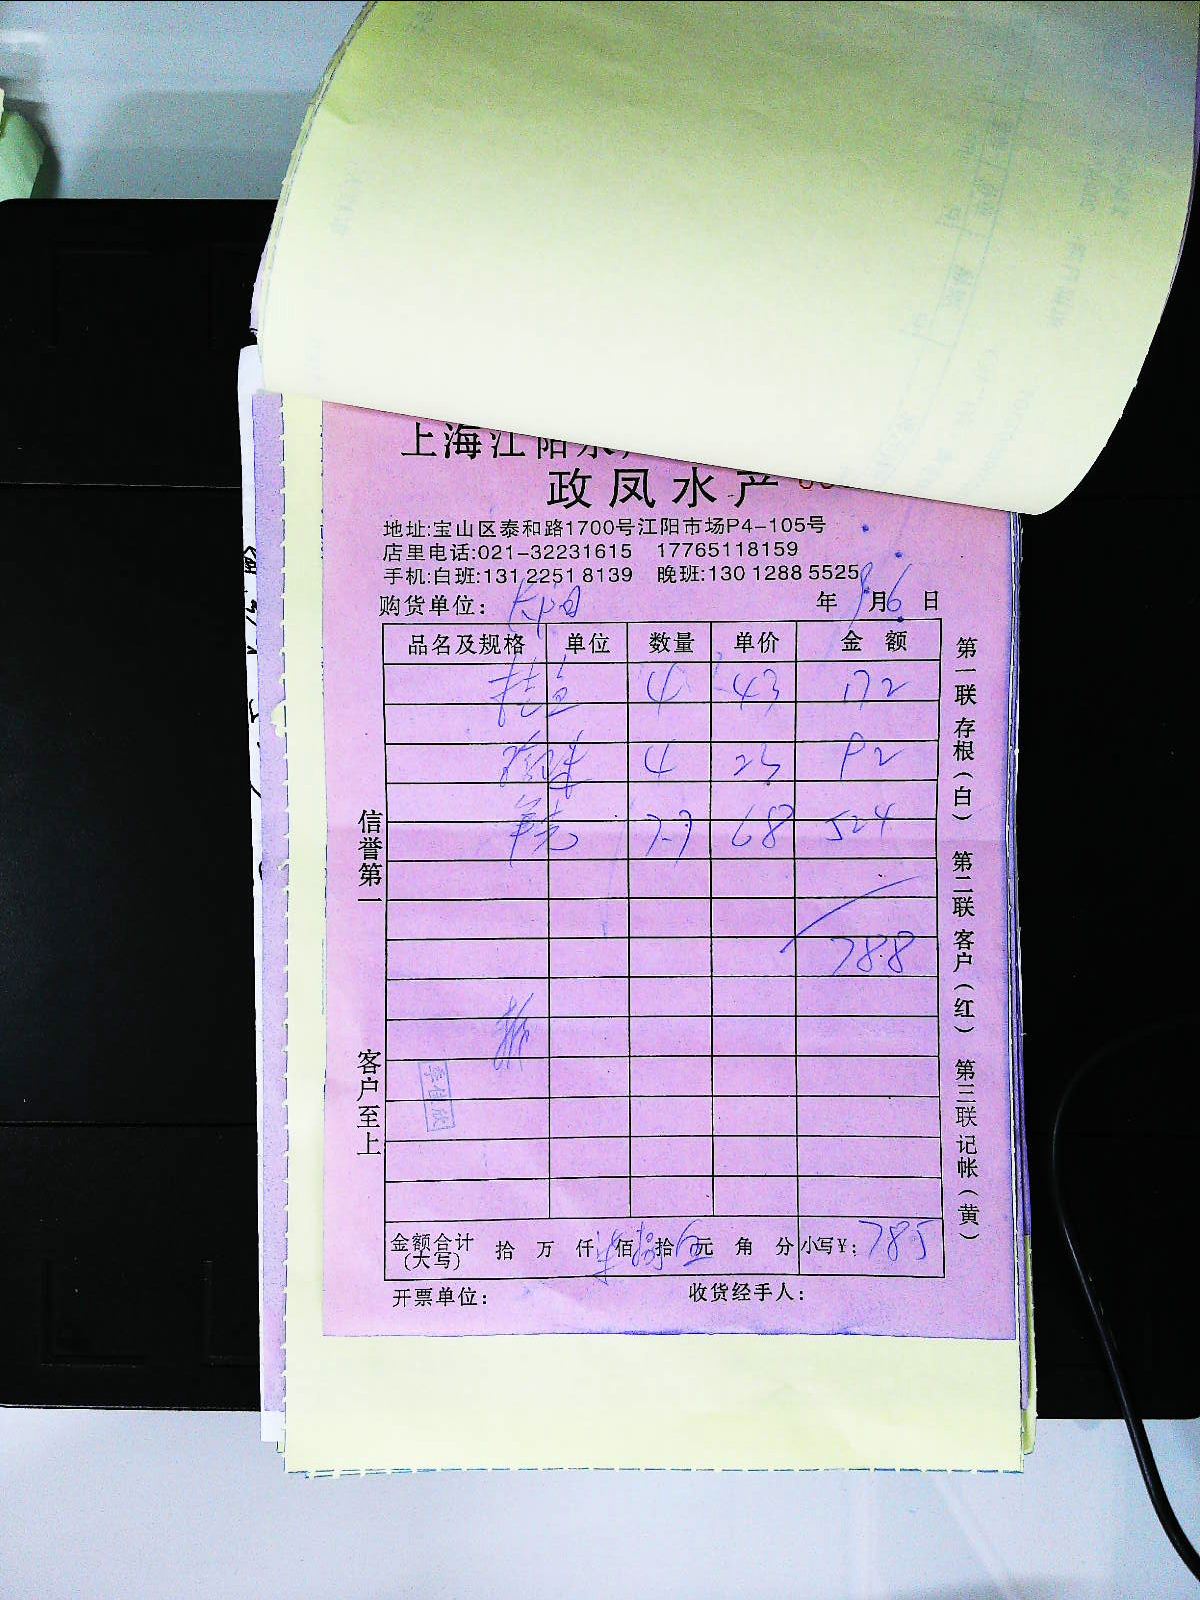 上海江阳水
政凤水产
地址:宝山区泰和路1700号江阳市场P4-105号
店里电话:021-32231615 17765118159
手机:白班:131 2251 8139 晚班:130 1288 5525
购货单位: 年 月6日
品名及规格 单位 数量 单价 金额
4 43 172
4 23 92
7.7 68 524
788
李佳欣
金额合计(大写) 拾 万 仟 柒佰捌拾伍元 角 分 小写¥: 785
开票单位: 收货经手人:
信誉第一 客户至上
第一联 存根(白) 第二联 客户(红) 第三联 记帐(黄)